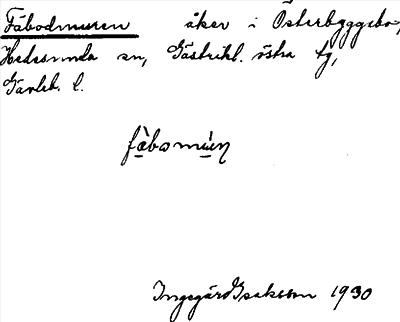 Fäbodmuren åker i Österbyggebo,
Hedesunda sn, Gästrikl. östra tg,
Gävleb. l.
fä̀bomúɛ̨n
Ingegärd Isaksson 1930